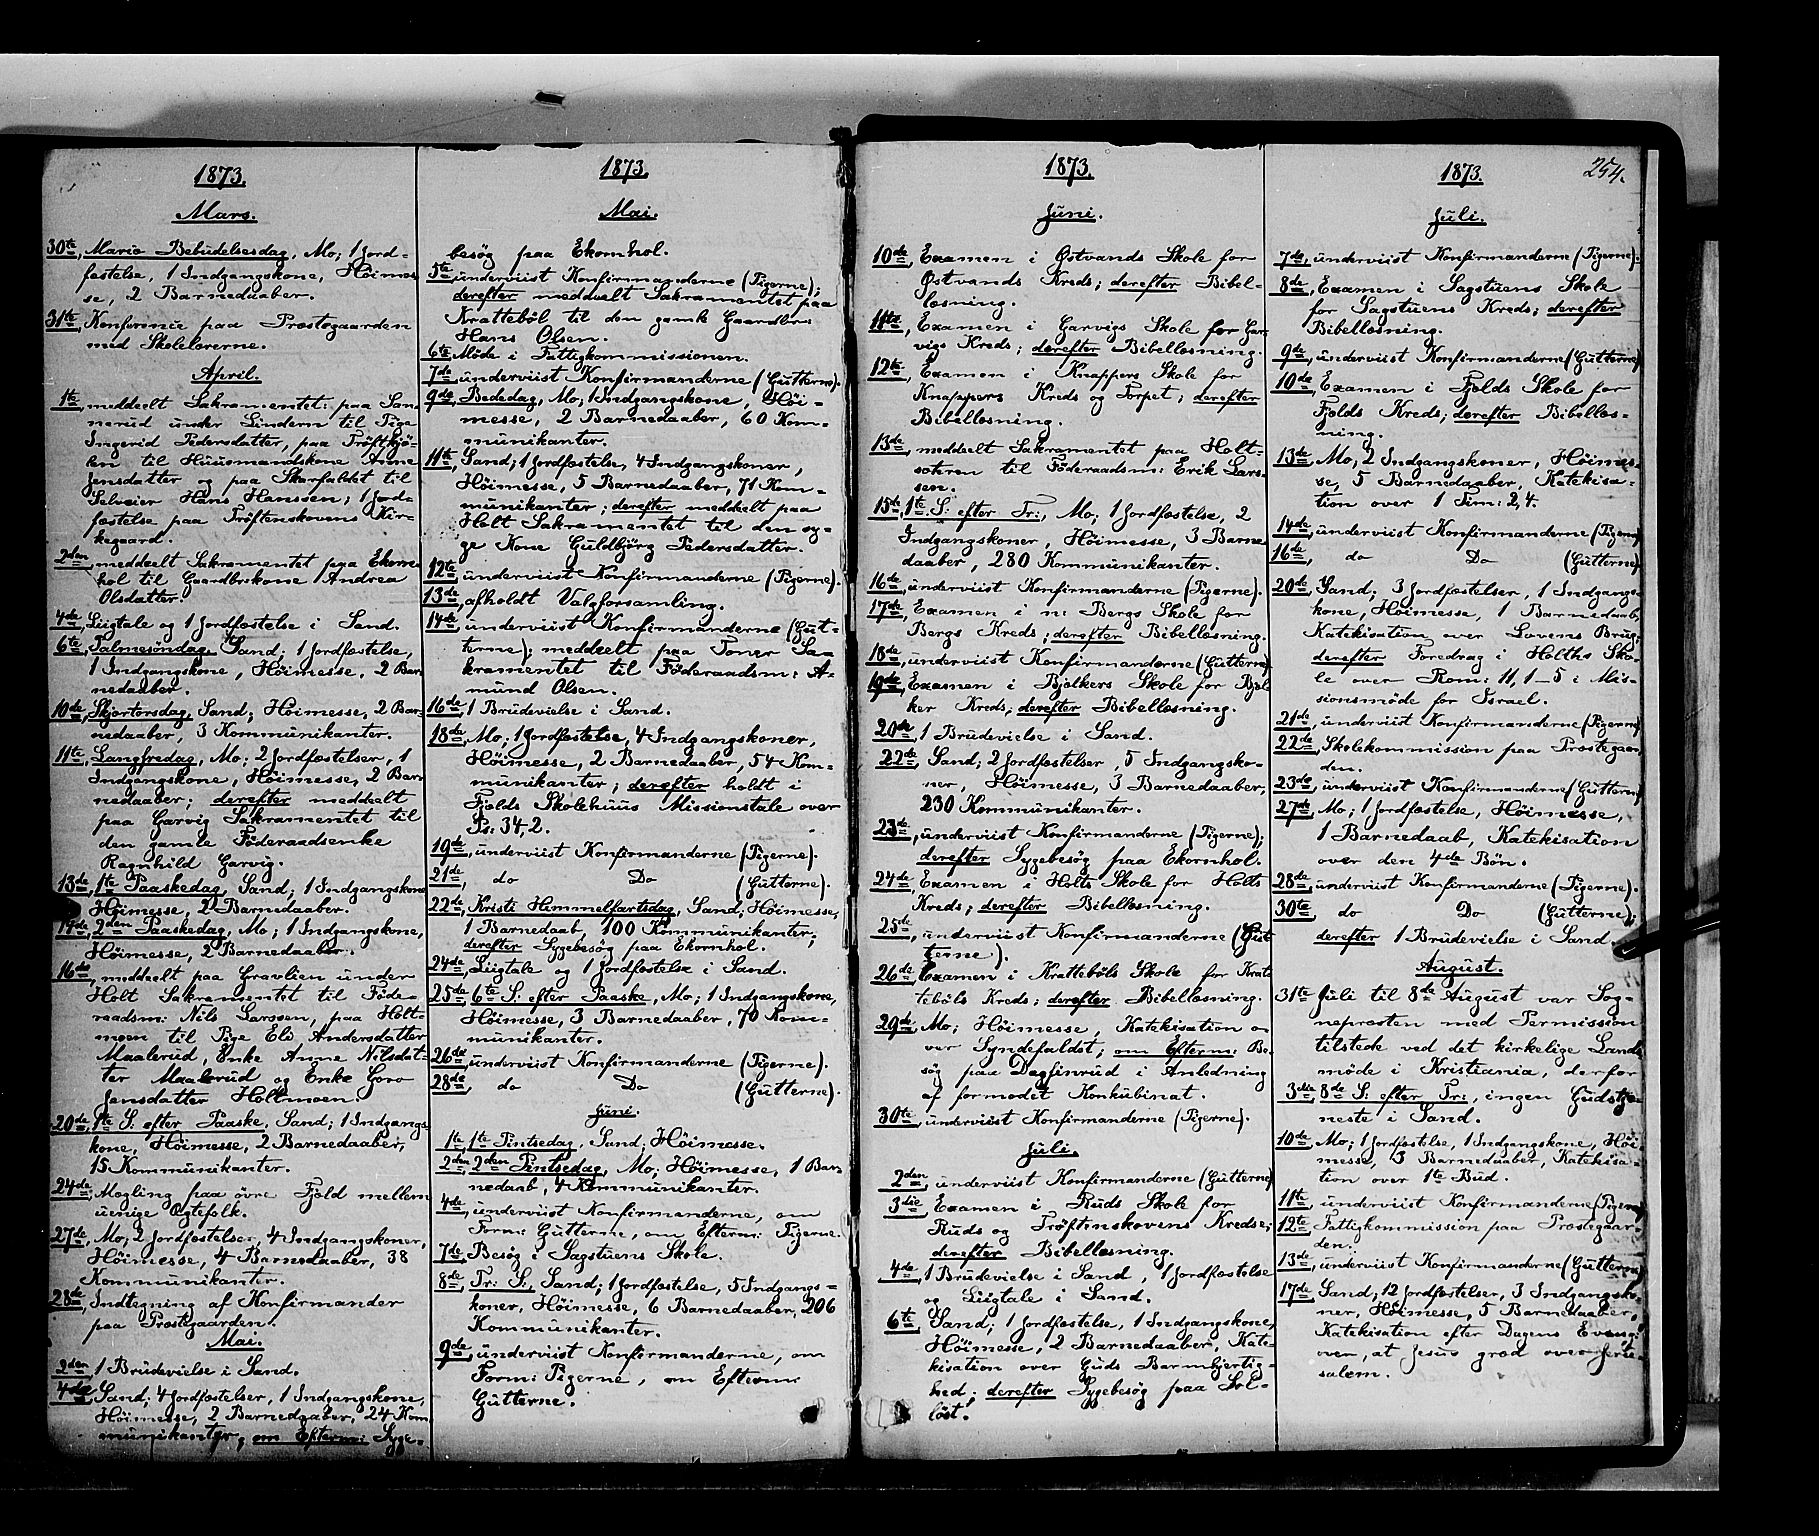 1873.
Mars.
30te, Mariæ Bebudelsesdag, Mo; 1 Jord-
fæstelse, 1 Indgangskone, Höimes-
se, 2 Barnedaaber.
31te, Konference paa Præstegaarden
med Skolelærerne.
April.
1te, meddeelt Sakramentet: paa San-
nerud under Lindern til Pige
Ingerid Pedersdatter, paa Tröftkjö-
len til Huusmandskone Anne
Jensdatter og paa Skarfaldet til
Selveier Hans Hanssen; 1 Jord-
fæstelse paa Tröftenskovens Kir-
kegaard.
2den, meddeelt Sakramentet paa Ekorn-
hol til Gaardbrkone Andrea
Olsdatter.
4de, Liigtale og 1 Jordfæstelse i Sand.
6te, Palmesöndag, Sand; 1 Jordfæstelse,
1 Indgangskone, Höimesse, 2 Bar-
nedaaber.
10de, Skjærtorsdag, Sand; Höimesse, 2 Bar-
nedaaber, 3 Kommunikanter.
11te, Langfredag, Mo; 2 Jordfæstelser, 1
Indgangskone, Höimesse, 2 Bar-
nedaaber; derefter meddeelt
paa Garvig Sakramentet til
den gamle Föderaadsenke
Ragnhild Garvig.
13de, 1te Paaskedag, Sand; 1 Indgangskone
Höimesse, 2 Barnedaaber.
14de, 2den Paaskedag, Mo; 1 Indgangskone,
Höimesse, 2 Barnedaaber.
16de, meddeelt paa Gravlien under
Holt Sakramentet til Föde-
raadsm: Nils Larssen, paa Holt-
moen til Pige Eli Andersdatter
Maalerud, Enke Anne Nilsdat-
ter Maalerud og Enke Goro
Jensdatter Holtmoen.
20de, 1te S: efter Paaske, Sand; 1 Indgangs-
kone, Höimesse, 2 Barnedaaber,
15 Kommunikanter.
24de, Mægling paa övre Fjeld mellem
uenige Ægtefolk.
27de, Mo; 2 Jordfæstelser, 4 Indgangskoner,
Höimesse, 4 Barnedaaber, 38
Kommunikanter.
28de, Indtegning af Konfirmander
paa Præstegaarden.
Mai.
2den, 1 Brudevielse i Sand.
4de, Sand; 4 Jordfæstelser, 1 Indgangskone,
Höimesse, 2 Barnedaaber, 24 Kom-
munikanter, om Efterm: Syge-
1873.
Mai.
besög paa Ekornhol.
5te, underviist Konfirmanderne (Pigerne);
derefter meddeelt Sakramentet paa
Krattebøl til den gamle Gaardbr:
Hans Olsen.
6te, Møde i Fattigkommissionen.
7de, underviist Konfirmanderne (Gutterne).
9de, Bededag, Mo; 1 Indgangskone, Höi-
messe, 2 Barnedaaber, 60 Kom-
munikanter.
11te, Sand; 1 Jordfæstelse, 4 Indgangskoner,
Höimesse, 5 Barnedaaber, 71 Kom-
munikanter; derefter meddelt paa
Holt Sakramentet til den sy-
ge Kone Guldbjörg Pedersdatter.
12te, underviist Konfirmanderne (Pigerne).
13de, afholdt Valgforsamling.
14de, underviist Konfirmanderne (Gut-
terne); meddeelt paa Toner Sa-
kramentet til Föderaadsm: A-
mund Olsen.
16de, 1 Brudevielse i Sand.
18de, Mo; 1 Jordfæstelse, 4 Indgangskoner,
Höimesse, 2 Barnedaaber, 54 Kom-
munikanter; derefter holdt i
Fjelds Skolehuus Missionstale over
Ps: 34,2.
19de, underviist Konfirmanderne (Pigerne).
21de, do Do (Gutterne).
22de, Kristi Himmelfartsdag, Sand; Höimesse,
1 Barnedaab, 100 Kommunikanter;
derefter Sygebesög paa Ekornhol.
24de, Liigtale og 1 Jordfæstelse i Sand.
25de, 6te S: efter Paaske, Mo; 1 Indgangskone,
Höimesse, 3 Barnedaaber, 70 Kom-
munikanter.
26de, underviist Konfirmanderne (Pigerne).
28de, do Do (Gutterne).
Juni.
1te, 1te Pintsedag, Sand, Höimesse.
2den, 2den Pintsedag, Mo, Höimesse, 1 Bar-
nedaab, 4 Kommunikanter.
4de, underviist Konfirmanderne, om
Form: Gutterne, om Efterm: Pigerne.
7de, Besög i Sagstuens Skole.
8de, Tr: S:, Sand; 1 Jordfæstelse, 5 Indgangs-
koner, Höimesse, 6 Barnedaaber, 206
Kommunikanter.
9de, underviist Konfirmanderne, om
Form: Pigerne, om Efterm:
Gutterne.
1873.
Juni.
10de, Examen i Østvands Skole for
Østvands Kreds; derefter Bibel-
læsning.
11te, Examen i Garvigs Skole for Gar-
vigs Kreds; derefter Bibellæsning.
12te, Examen i Knappers Skole for
Knappers Kreds og Torpet; derefter
Bibellæsning.
13de, meddeelt Sakramentet paa Holt-
sæteren til Föderaadsm: Erik Lars-
sen.
15de, 1te S: efter Tr:, Mo; 1 Jordfæstelse, 2
Indgangskoner, Höimesse, 3 Barne-
daaber, 280 Kommunikanter.
16de, underviist Konfirmanderne (Pigerne).
17de, Examen i n: Bergs Skole for
Bergs Kreds; derefter Bibellæsning.
18de, underviist Konfirmanderne (Gutterne)
19de, Examen i Bjelkers Skole for Bjel-
ker Kreds; derefter Bibellæsning.
20de, 1 Brudevielse i Sand.
22de, Sand; 2 Jordfæstelser, 5 Indgangsko-
ner, Höimesse, 3 Barnedaaber,
230 Kommunikanter.
23de, underviist Konfirmanderne (Pigerne);
derefter Sygebesög paa Ekornhol.
24de, Examen i Holts Skole for Holts
Kreds; derefter Bibellæsning.
25de, underviist Konfirmanderne (Gut-
terne).
26de, Examen i Krattebøls Skole for Krat-
tebøls Kreds; derefter Bibellæsning.
29de, Mo; Höimesse, Katekisation o-
ver Syndefaldet; om Efterm: Be-
søg paa Dagfinrud i Anledning
af formodet Konkubinat.
30te, underviist Konfirmanderne (Pigerne).
Juli.
2den, underviist Konfirmanderne (Gutterne)
3die, Examen i Ruds Skole for
Ruds og Tröftenskovens Kredse;
derefter Bibellæsning.
4de, 1 Brudevielse i Sand, 1 Jordfæstelse
og Liigtale i Sand.
6te, Sand; 1 Jordfæstelse, 1 Indgangskone,
Höimesse, 2 Barnedaaber, Kate-
kisation over Guds Barmhjertig-
hed; derefter Sygebesög paa Sol-
löst.
1873.
254.
Juli.
7de, underviist Konfirmanderne (Pigerne).
8de, Examen i Sagstuens Skole
for Sagstuens Kreds; derefter
Bibellæsning.
9de, underviist Konfirmanderne (Gutterne)
10de, Examen i Fjelds Skole for
Fjelds Kreds; derefter Bibellæs-
ning.
13de, Mo; 2 Indgangskoner, Höimes-
se, 5 Barnedaaber, Katekisa-
tion over 1 Tim: 2,4.
14de, underviist Konfirmanderne (Pigerne)
16de, do Do (Gutterne)
20de, Sand; 3 Jordfæstelser, 1 Indgangs-
kone, Höimesse, 1 Barnedaab,
Katekisation over Lovens Brug;
derefter Foredrag i Holths Sko-
le over Rom: 11, 1-5 i Mis-
sionsmöde for Israel.
21de, underviist Konfirmanderne (Pigerne)
22de, Skolekommission paa Præstegaar-
den.
23de, underviist Konfirmanderne (Gutterne)
27de, Mo; 1 Jordfæstelse, Höimesse,
1 Barnedaab, Katekisation
over den 4de Bön.
28de, underviist Konfirmanderne (Pigerne).
30te, do Do (Gutterne);
derefter 1 Brudevielse i Sand.
August.
31te Juli til 8de August var Sog-
nepræsten med Permission
tilstede ved det kirkelige Lands-
møde i Kristiania, derfor
3die, 8de S: efter Tr:, ingen Gudstje-
neste i Sand.
10de, Mo; 1 Jordfæstelse, 1 Indgangskone, Höi-
messe, 3 Barnedaaber, Katekisa-
tion over 1te Bud.
11te, underviist Konfirmanderne (Pigerne)
12te, Fattigkommission paa Præstegaar-
den.
13de, underviist Konfirmanderne (Gutterne)
17de, Sand; 12 Jordfæstelser, 3 Indgangsko-
ner, Höimesse, 5 Barnedaaber,
Katekisation efter Dagens Evang:
over, at Jesus græd over Jeru-
salem.